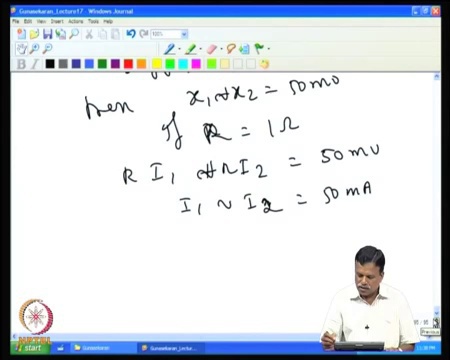 Gunasekaran_Lecture17 - Windows Journal
File Edit View Insert Actions Tools Help
100%
B I
then x₁ ~ x₂ = 50mv
If R = 1Ω
R I₁ ~ R I₂ = 50mv
I₁ ~ I₂ = 50mA
NPTEL
start Gunasekaran Gunasekaran_Lectu...
Previous